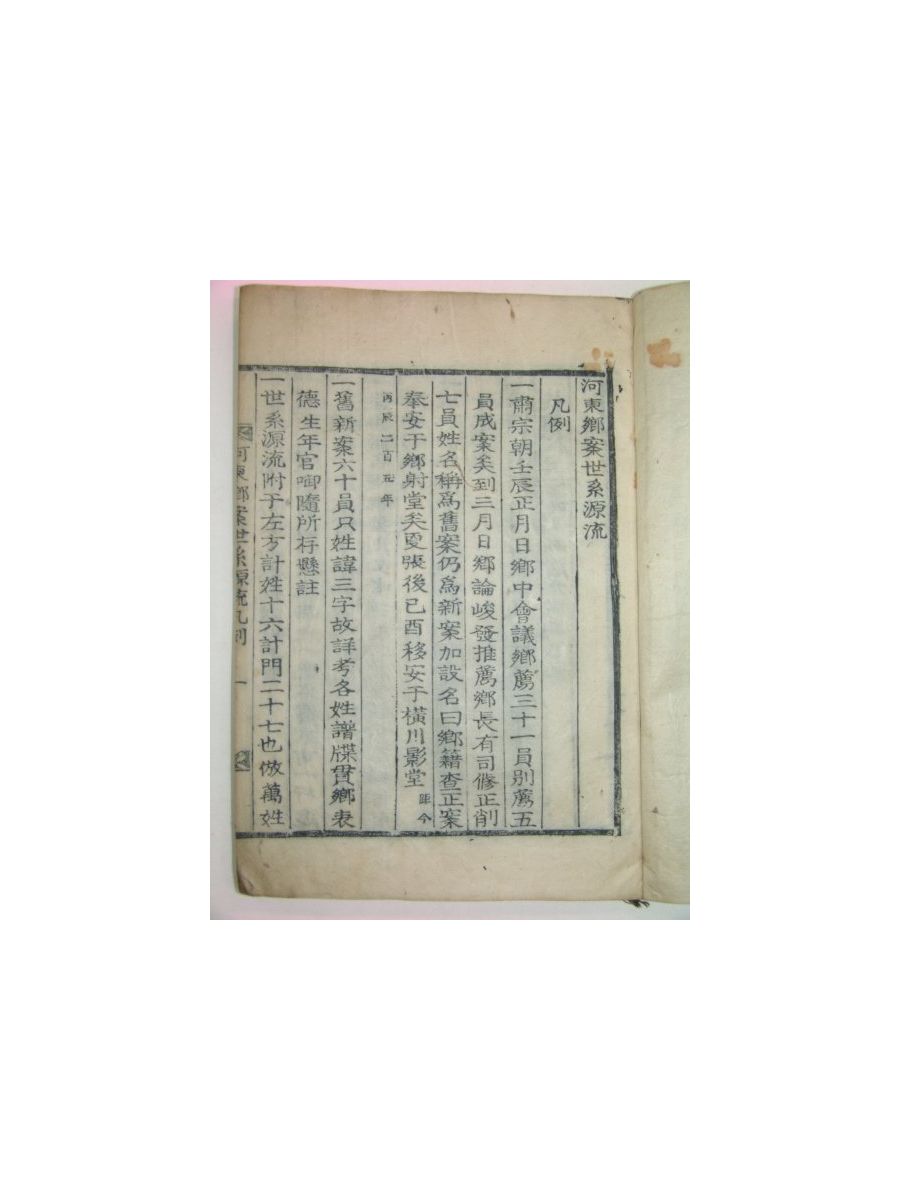 河東鄉案世系源流
凡例
一肅宗朝壬辰正月日鄉中會議鄉薦三十一員別薦五
員成案矣到三月日鄉論峻發推薦鄉長有司修正削
七員姓名稱爲舊案仍爲新案加設名曰鄉籍查正案
奉安于鄉射堂矣夏張後己酉移安于橫川影堂 距今
丙辰二百五年
一舊新案六十員只姓諱三字故詳考各姓譜牒貫鄉表
德生年官啣隨所存懸註
一世系源流附于左方計姓十六計門二十七也倣萬姓
河東鄉案世系源流凡例 一